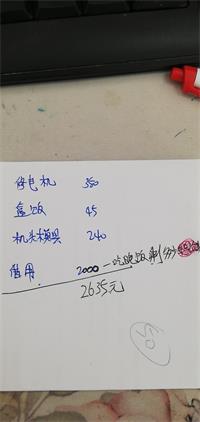 修电机 350
盒饭 45
机头模具 240
借用 2000 一吃晚饭剩
2635元